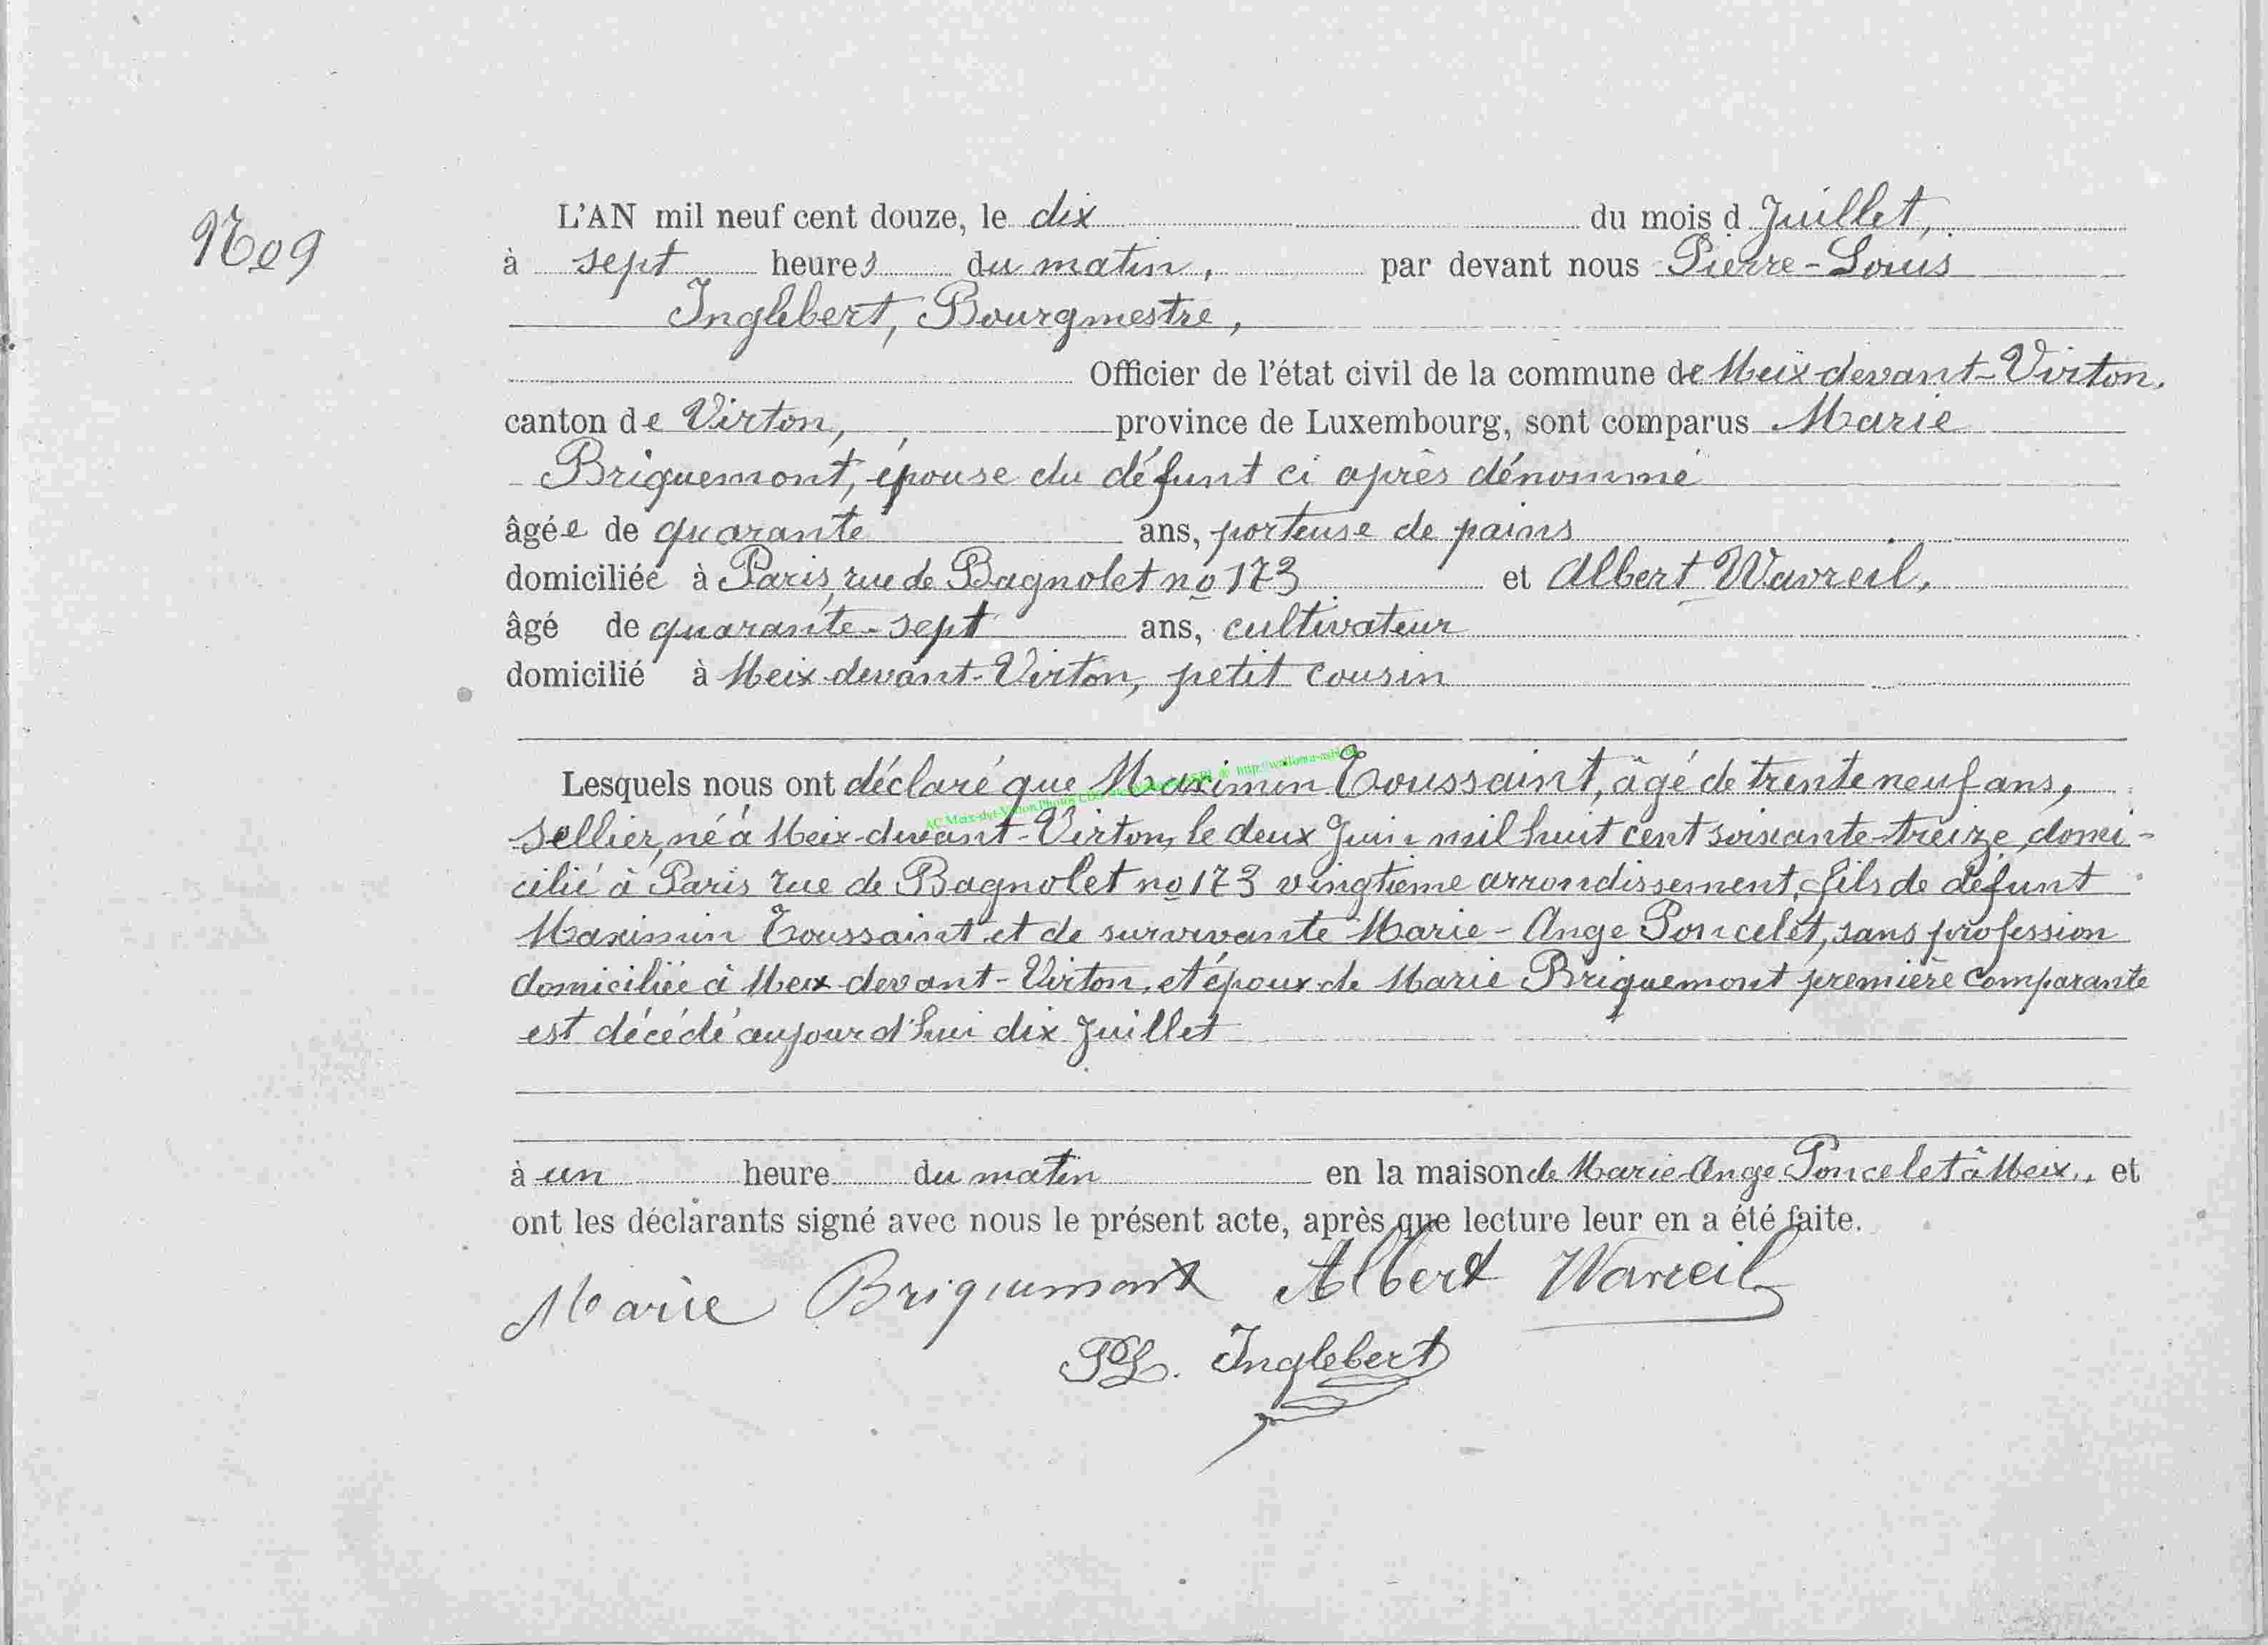 No 9
L'AN mil neuf cent douze, le dix du mois d Juillet,
à sept heures du matin, par devant nous Pierre-Louis
Inglebert, Bourgmestre,
Officier de l'état civil de la commune de Meix-devant-Virton.
canton de Virton, province de Luxembourg, sont comparus Marie
Briquemont, épouse du défunt ci après dénommé
âgée de quarante ans, porteuse de pains
domiciliée à Paris, rue de Bagnolet no 173 et Albert Wavreil,
âgé de quarante-sept ans, cultivateur
domicilié à Meix-devant-Virton, petit cousin
Lesquels nous ont déclaré que Maximin Toussaint, âgé de trente neuf ans,
sellier, né à Meix-devant-Virton, le deux Juin mil huit cent soixante-treize, domi-
cilié à Paris rue de Bagnolet no 173 vingtième arrondissement, fils de défunt
Maximin Toussaint et de survivante Marie-Ange Poncelet, sans profession
domiciliée à Meix-devant-Virton, et époux de Marie Briquemont première comparante
est décédé aujourd'hui dix Juillet
à un heure du matin en la maison de Marie-Ange Poncelet à Meix, et
ont les déclarants signé avec nous le présent acte, après que lecture leur en a été faite.
Marie Briquemont Albert Wavreil
PL. Inglebert